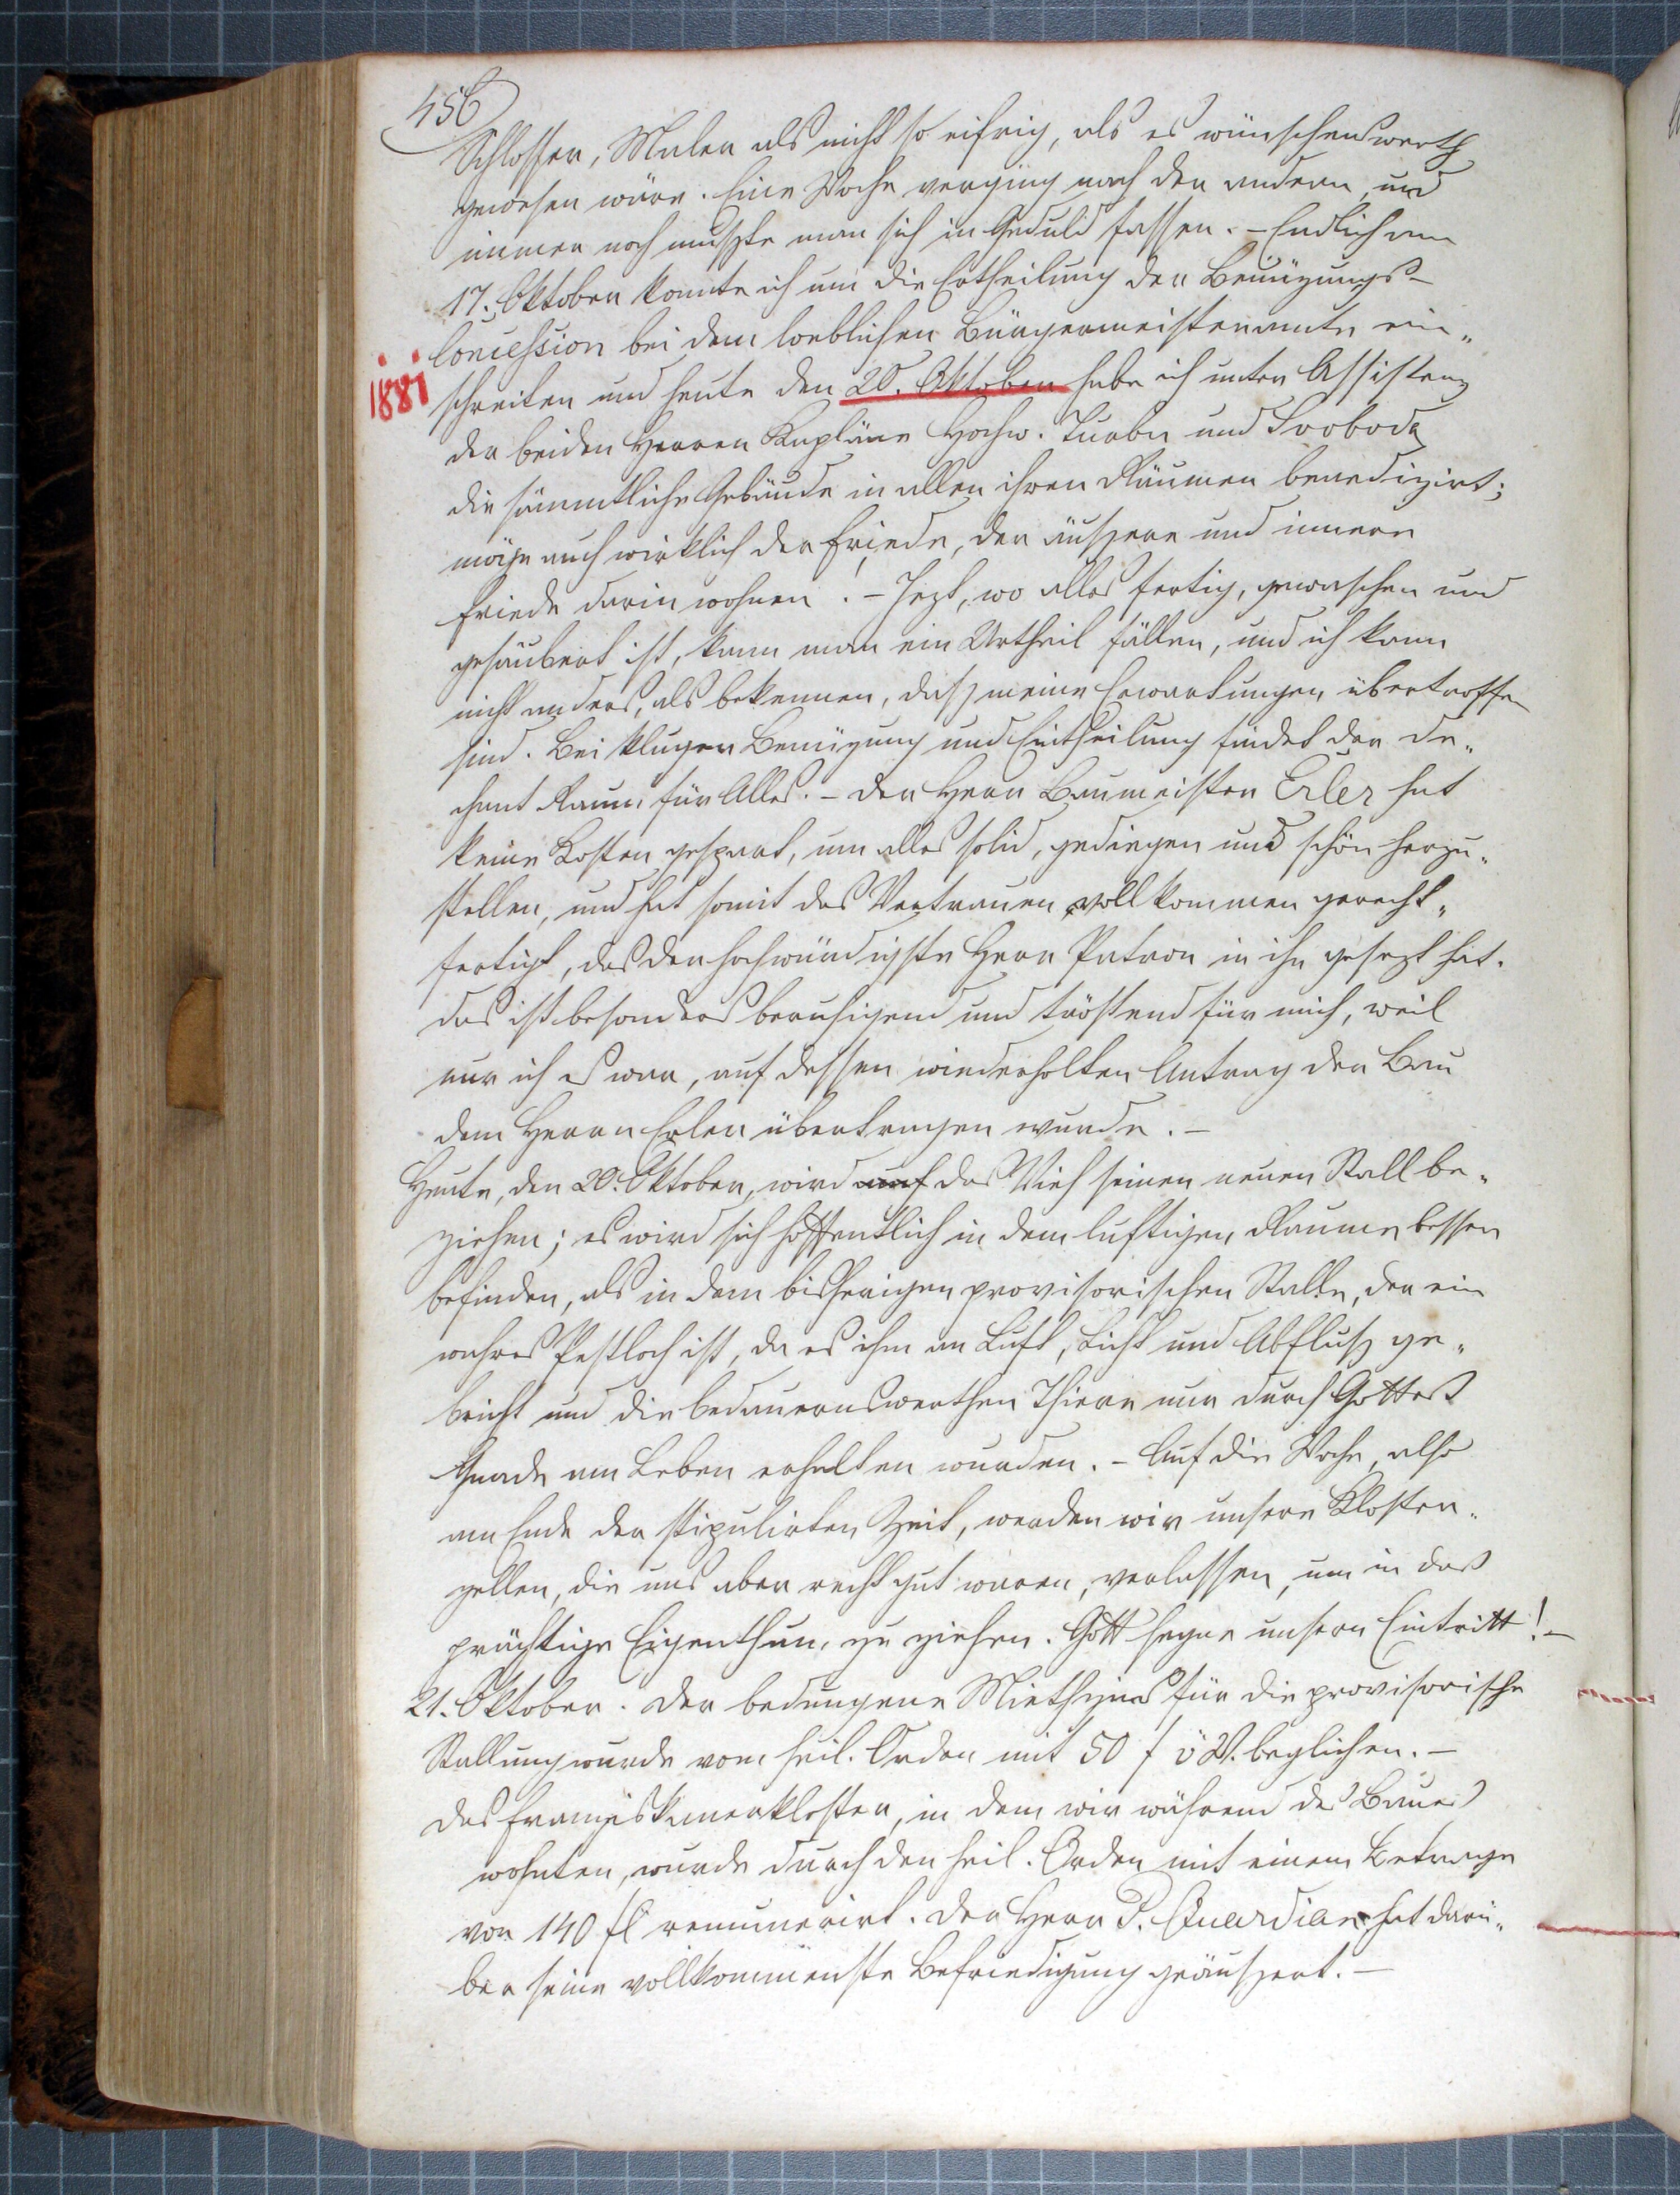 456
Schlosser, Maler als nicht so eifrig, als es wünschenswerth
gewesen wäre. Eine Woche verging nach der andern, und
immer noch mußte man sich in Geduld fassen. – Endlich am
17. Oktober konnte ich um die Ertheilung der Benüzungs-
Concession bei dem loeblichen Bürgermeisteramte ein„
1881
schreiten und heute den 20. Oktober habe ich unter Assistenz
der beiden Herren Kapläne Hochw. Turba und Svoboda
die sämmtliche Gebäude in allen ihren Räumen benedizirt;
möge auch wirklich der Friede, der äußere und innere
Friede darin wohnen! – Jezt, wo alles fertig, gewaschen und
gesäubert ist, kann man ein Urtheil fällen, und ich kann
nicht anders, als bekennen, daß meine Erwartungen übertroffen
sind. Bei kluger Benüzung und Eintheilung findet der De„
chant Raum für Alles. – Der Herr Baumeister Erler hat
keine Kosten gespart, um alles solid, gediegen und schön herzu„
stellen, und hat somit das Vertrauen vollkommen gerecht„
fertigt, das der hochwürdigste Herr Patron in ihn gesezt hat.
Das ist besonders beruhigend und tröstend für mich, weil
nur ich es war, auf dessen wiederholten Antrag der Bau
dem Herrn Erler übertragen wurde. –
Heute, den 20. Oktober, wird auch das Vieh seinen neuen Stall be„
ziehen; es wird sich hoffentlich in dem luftigen Raume besser
befinden, als in dem bisherigen provisorischen Stalle, der ein
wahres Pestloch ist, da es ihm an Luft, Licht und Abfluß ge„
bricht und die bedauernswerthen Thiere nur durch Gottes
Gnade am Leben erhalten wurden. – Auf die Woche, also
am Ende der stipulirten Zeit, werden wir unsere Kloster„
zellen, die uns aber recht gut waren, verlassen, um in das
prächtige Eigenthum zu ziehen. Gott segne unsern Eintritt! –
21. Oktober. Der bedungene Miethzins für die provisorische
Stallung wurde vom heil. Orden mit 50 f ö W. beglichen. –
Das Franziskanerkloster, in dem wir während des Baues
wohnten, wurde durch den heil. Orden mit einem Betrage
von 140 fl remunerirt. Der Herr P. Guardian hat darü„
ber seine vollkommenste Befriedigung geäußert. –